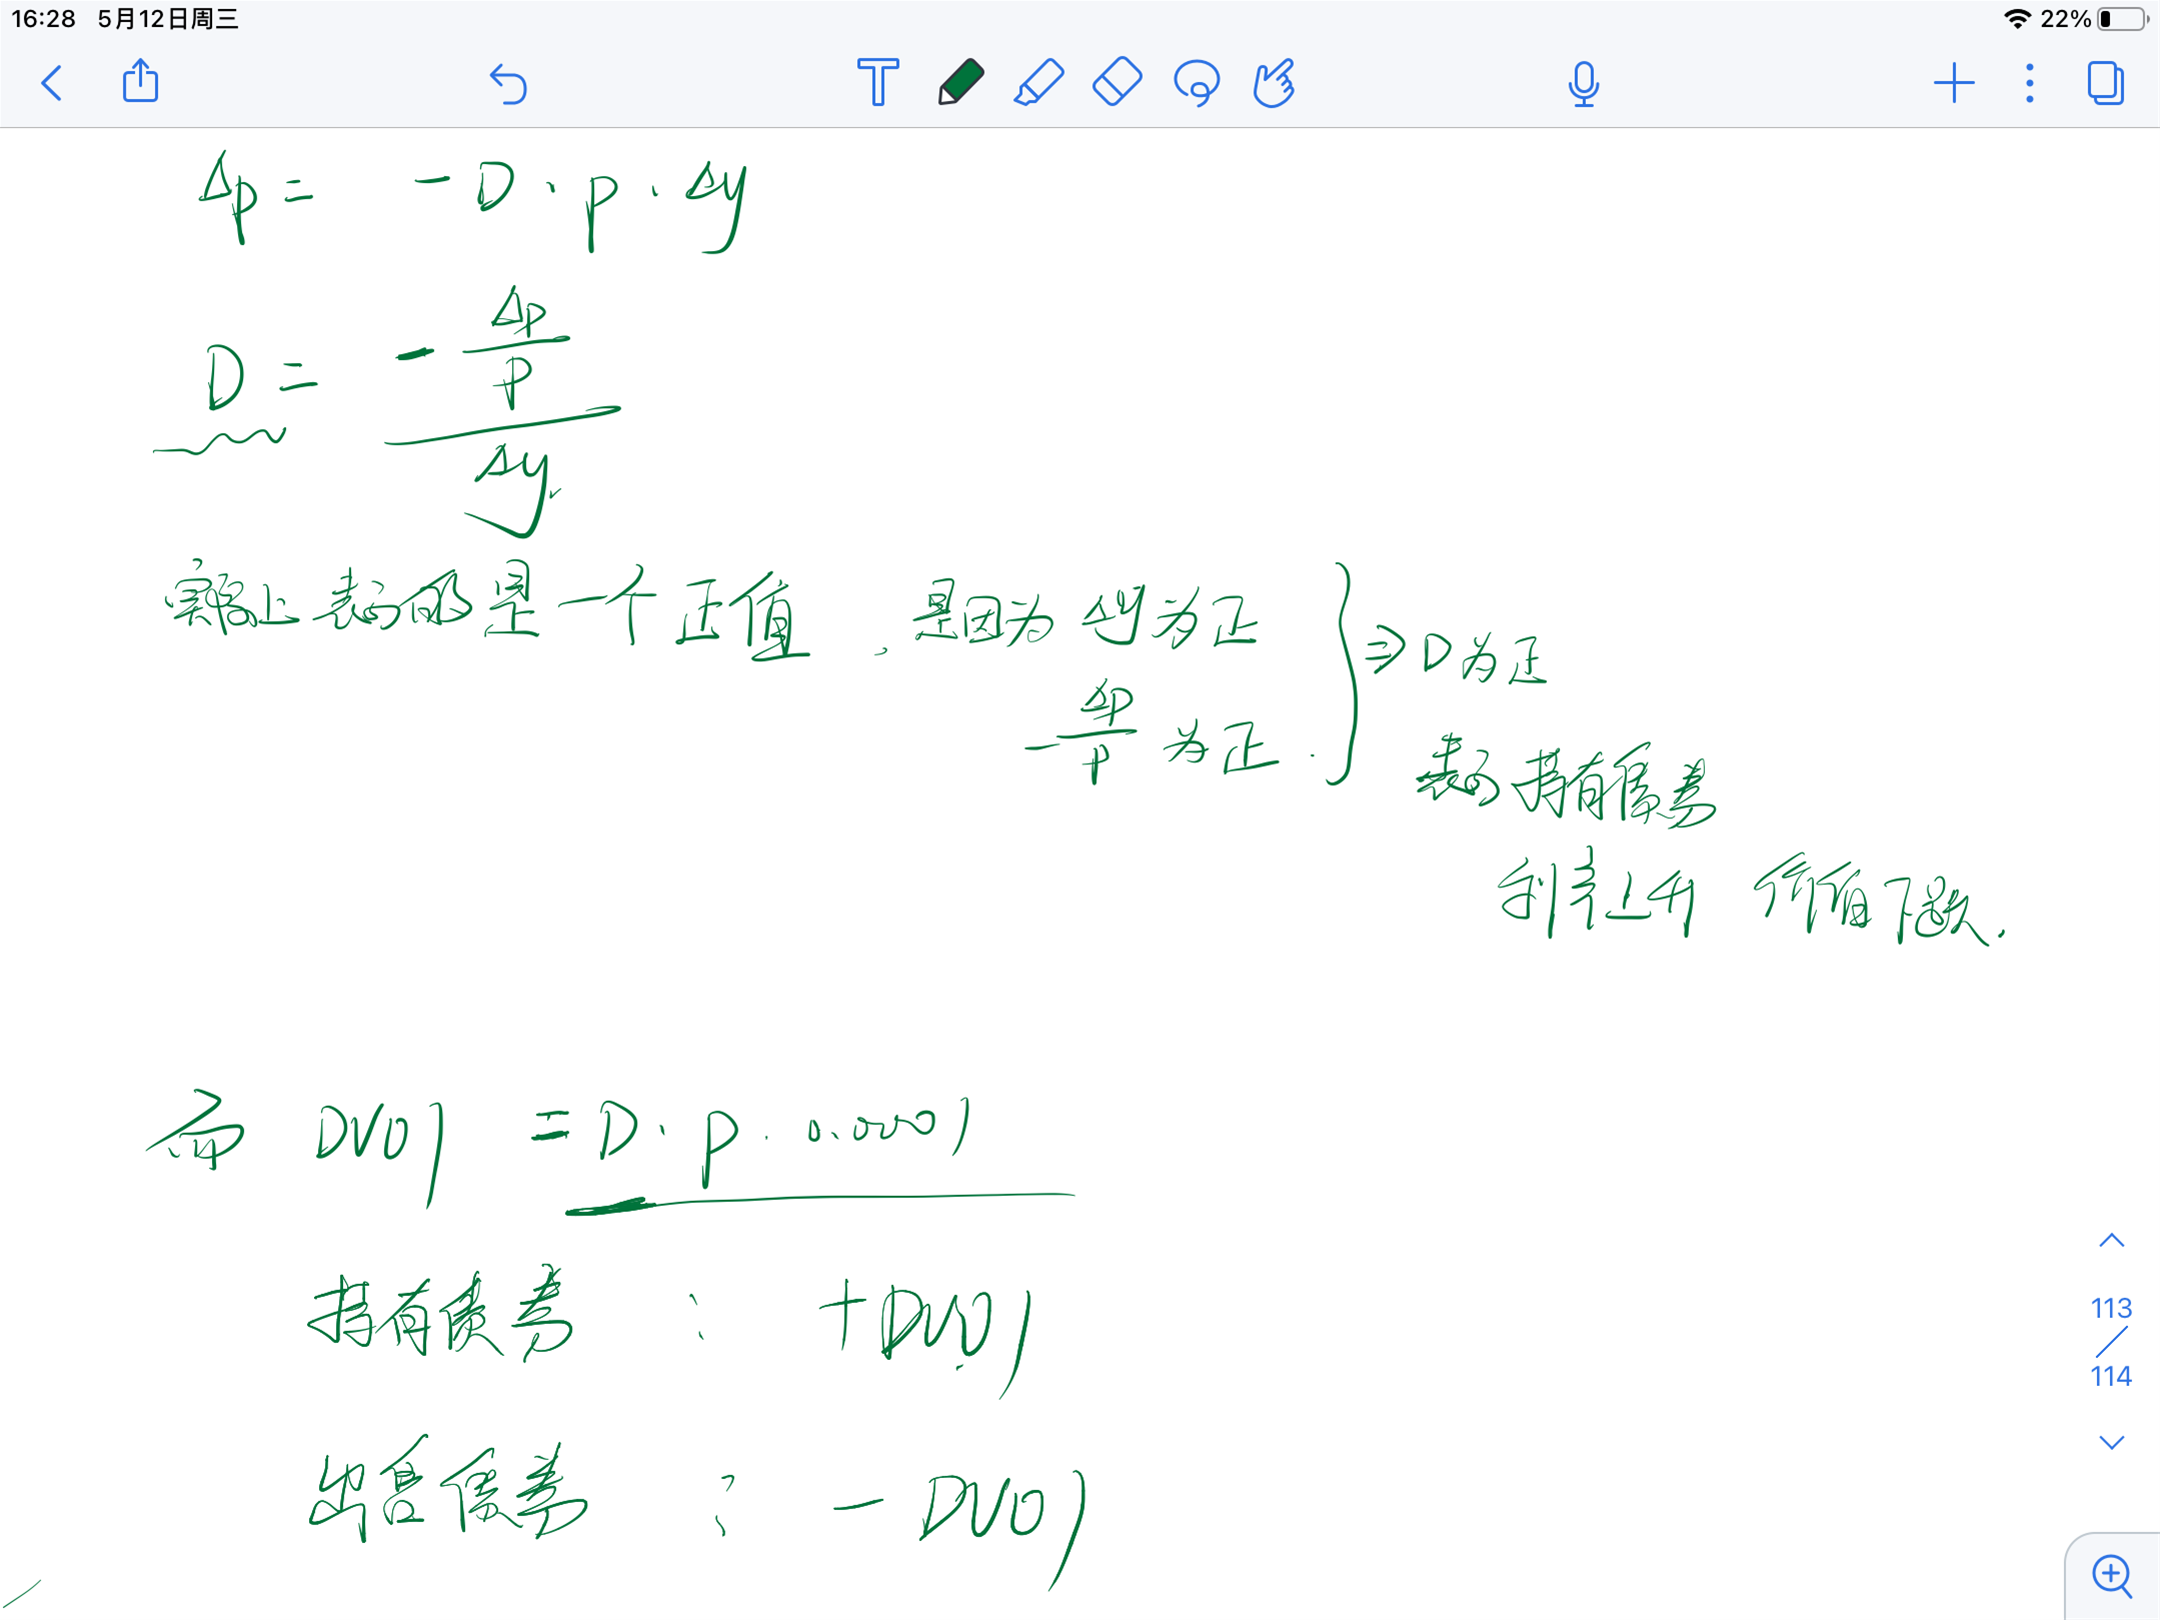 16:28 5月12日周三 22%
Δp = -D · p · Δy
D = - Δp/p / Δy
实际上表示的是一个正值，是因为 Δy 为正
- Δp/p 为正. ⇒ D为正
表示持有债券
利率上升 价值下跌.
而 DV01 = D · p · 0.0001
持有债券 : +DV01
出售债券 : -DV01
113
114